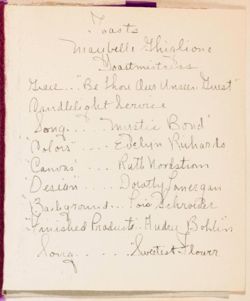 Toasts
Maybelle Ghiglione
Toastmistress
Grace.. "Be Thou Our Unseen Guest"
Candlelight Service
Song.... "Mystic Bond"
"Colors" .... Evelyn Richards
"Canvas" .... Ruth Nordstrom
"Design ..... Dorothy Lanergan
"Background... Lois Schroeder
"Finished Product". Audrey Bohlin
Song..... Sweetest Flower